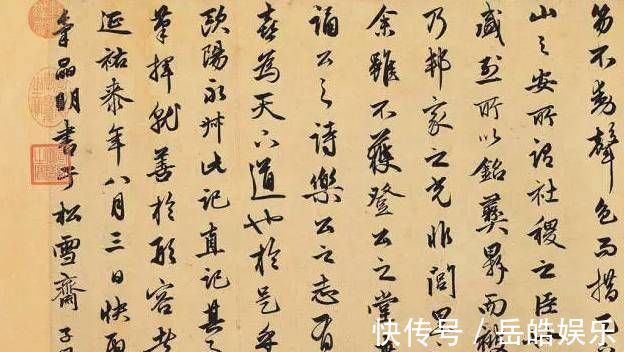 笏不動聲色而措天
山之安所謂社稷之臣
盛烈所以銘彝鼎而被
乃邦家之光非閭里
余雖不獲登公之堂
誦公之詩樂公之志有
喜為天下道也於是乎
歐陽永叔此記直記其
筆揮就善於形容者
延祐泰年八月三日快雨
晶明書于松雪齋子
快传号 / 岳皓娱乐